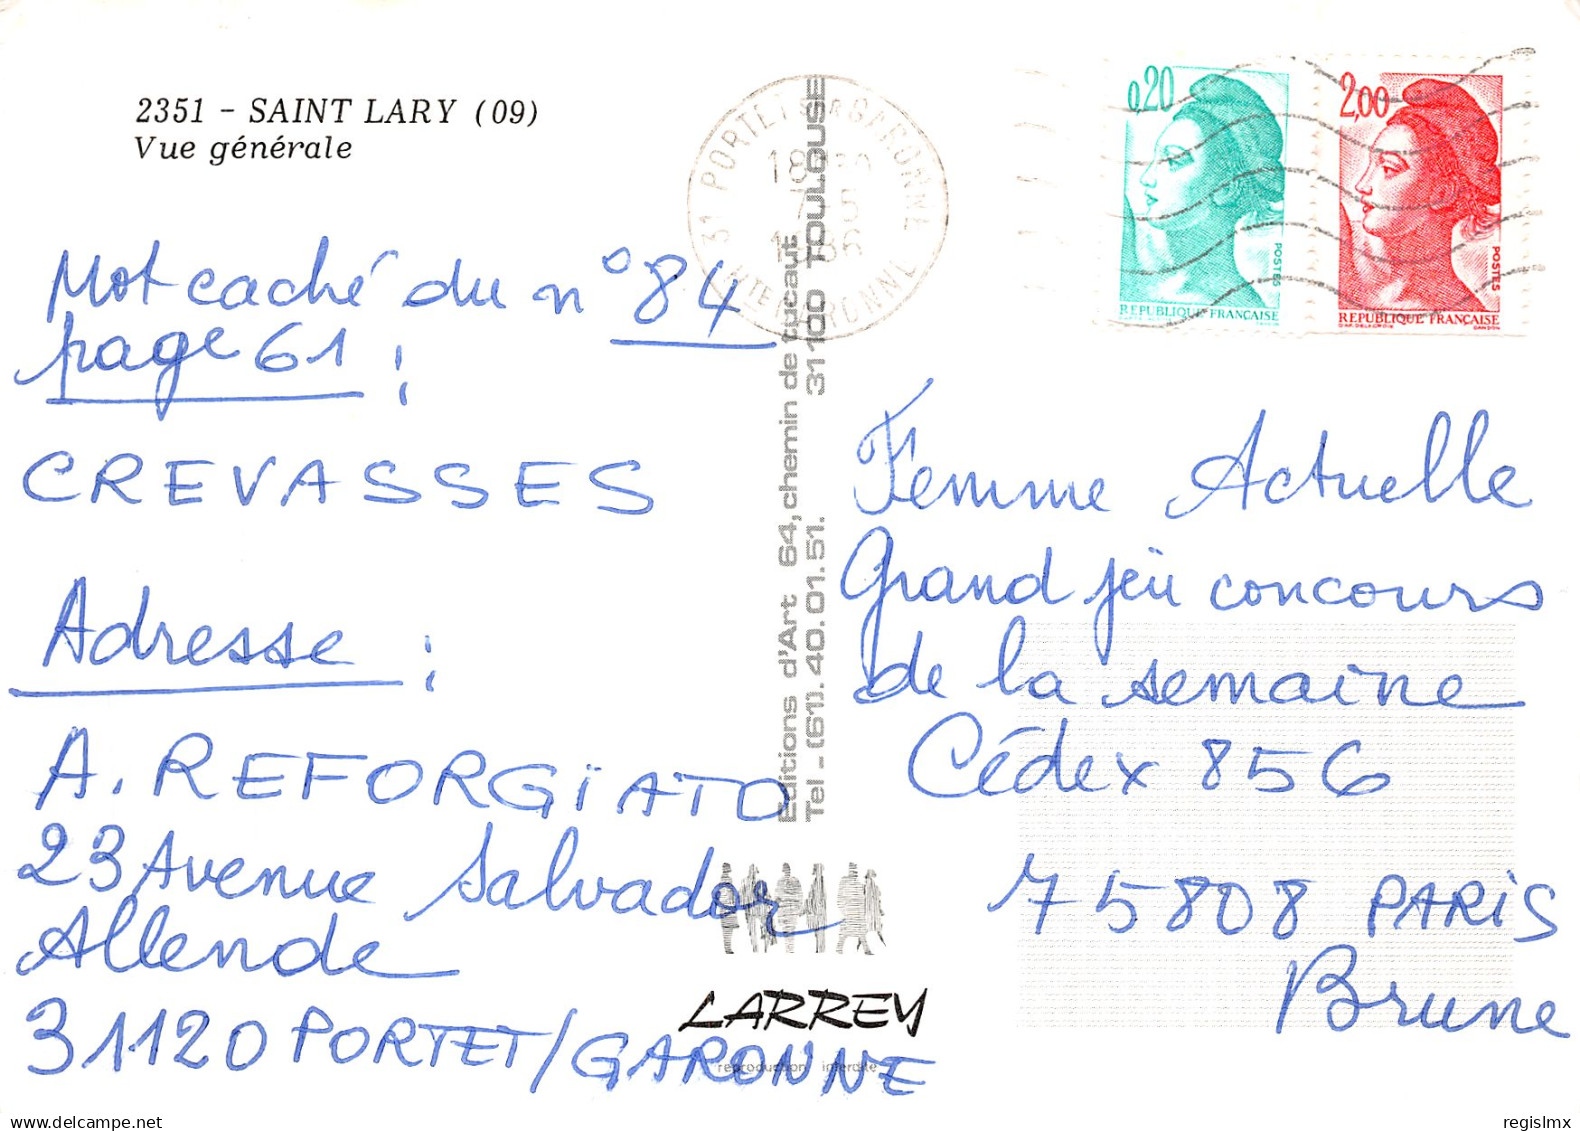 2351 - SAINT LARY (09)
Vue générale
Mot caché du n° 84
page 61 :
CREVASSES
Adresse :
A. REFORGIATO
23 Avenue Salvador
Allende
31120 PORTET/GARONNE
Editions d'Art 64, chemin de Tucaut 31100 TOULOUSE
Tel - (61). 40.01.51.
LARREY
reproduction interdite
31 PORTET S/ GARONNE
HTE GARONNE
0,20
POSTES
REPUBLIQUE FRANÇAISE
2,00
POSTES
REPUBLIQUE FRANÇAISE
Femme Actuelle
Grand jeu concours
de la semaine
Cédex 856
75808 PARIS
Brune
regislmx